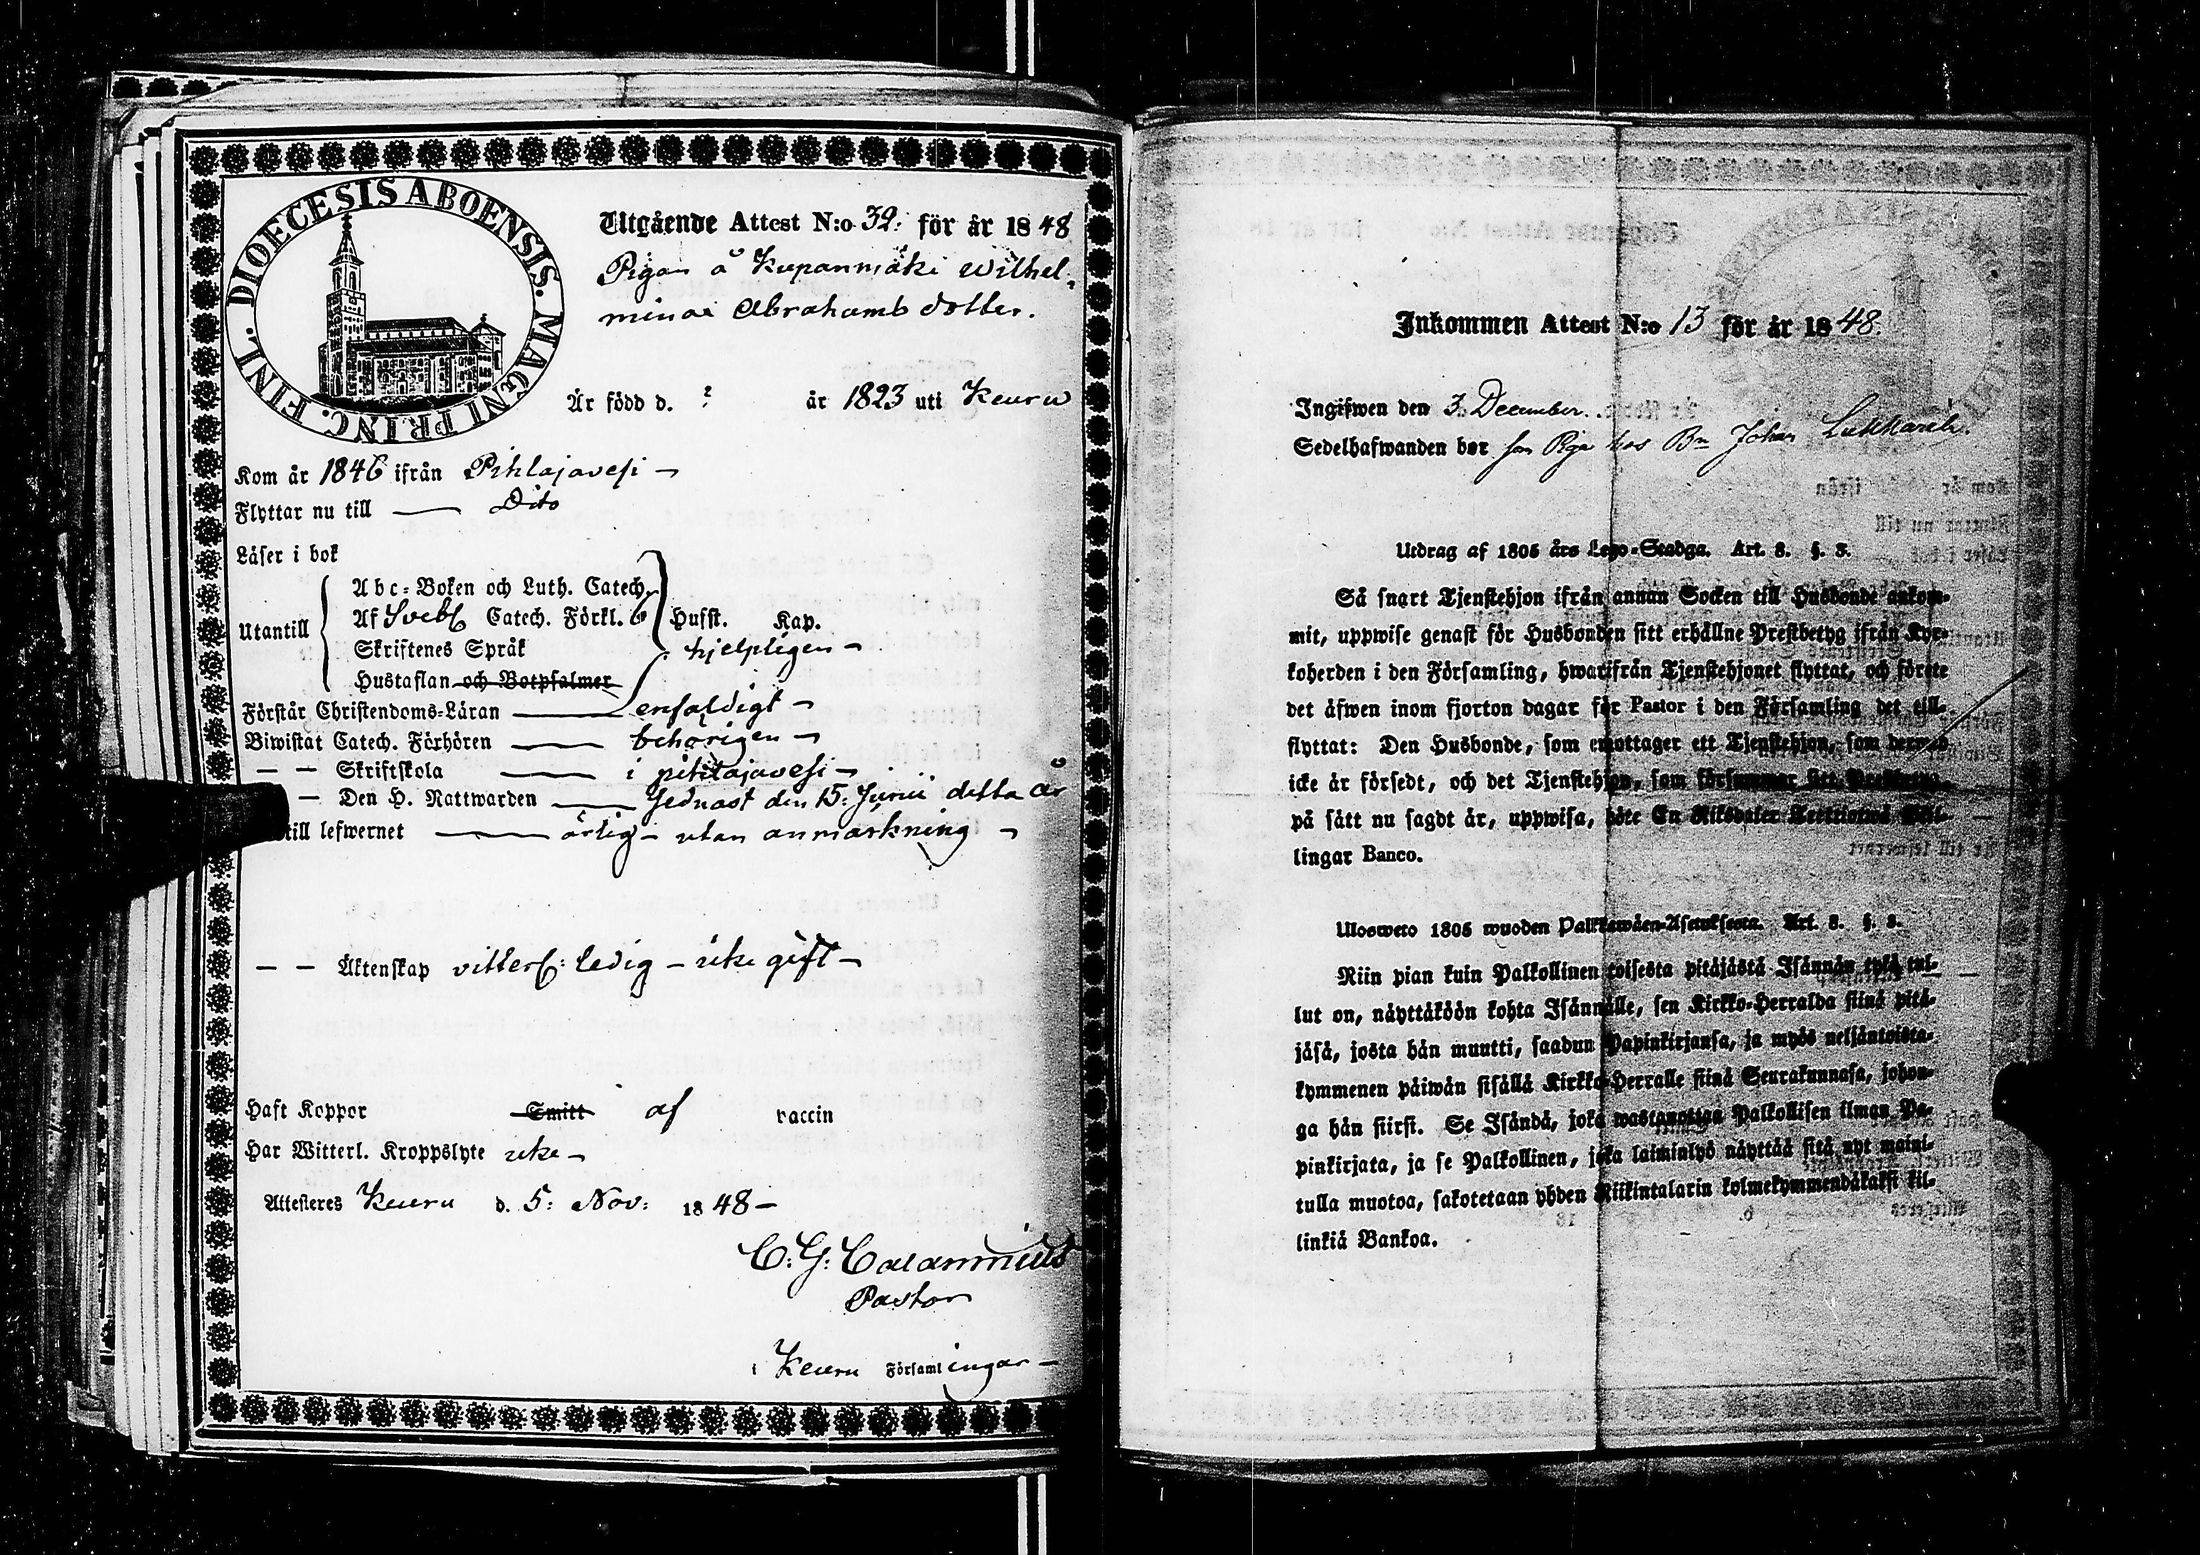 DIOECESIS ABOENSIS. MAGNI PRINC. FINL.
Utgående Attest N:o 39: för år 1848
Pigan å Kupanmäki Wilhel-
mina Abrahamsdotter.
Är född d. ? år 1823 uti Keuru
Kom år 1846 ifrån Pihlajavesi —
Flyttar nu till — Dito
Läser i bok
Utantill
Abc-Boken och Luth. Catech.
Af Svebs Catech. Förkl. 6 Husst. Kap.
Skriftenes Språk hjelpligen —
Hustaflan och Botpsalmer
Förstår Christendoms-Läran — enfaldigt —
Biwistat Catech. Förhören — behörigen —
— — Skriftskola — i pihlajavesi —
— Den H. Nattwarden — sednast den 15: Junii detta år
till lefwernet — ärlig — utan anmärkning —
— — Äktenskap vitterl: ledig — icke gift —
Haft Koppor Smitt af vaccin
Har Witterl. Kroppslyte icke —
Attesteras Keuru d. 5: Nov: 1848 —
C: G: Calamnius
Pastor
i Keuru Församlingar —
Inkommen Attest N:o 13 för år 1848.
Ingifwen den 3. December.
Sedelhafwanden bor som Piga hos Bn Johan
Utdrag af 1805 års Lego-Stadga. Art. 8. §. 3.
Så snart Tjenstehjon ifrån annan Socken till Husbonde ankom-
mit, uppwise genast för Husbonden sitt erhållne Prestbetyg ifrån Kyr-
koherden i den Församling, hwarifrån Tjenstehjonet flyttat, och förete
det äfwen inom fjorton dagar för Pastor i den Församling det till-
flyttat: Den Husbonde, som emottager ett Tjenstehjon, som dermed
icke är försedt, och det Tjenstehjon, som försummar sitt Prestbetyg,
på sätt nu sagdt är, uppwisa, böte En Riksdaler Trettiotwå Skil-
lingar Banco.
Ulosweto 1805 wuoden Palkkawäen-Asetuksesta. Art. 8. §. 3.
Niin pian kuin Palkollinen toisesta pitäjästä Isännän tykö tul-
lut on, näyttäköön kohta Isännälle, sen Kirkko-Herralda siinä pitä-
jäsä, josta hän muutti, saadun Papinkirjansa, ja myös neljäntoista-
kymmenen päiwän sisällä Kirkko-Herralle siinä Seurakunnasa, johon-
ga hän siirsi. Se Isändä, joka wastanottaa Palkollisen ilman Pa-
pinkirjata, ja se Palkollinen, joka laiminlyö näyttää sitä nyt maini-
tulla muotoa, sakotetaan yhden Riikintalarin kolmekymmendäkaksi kil-
linkiä Bankoa.